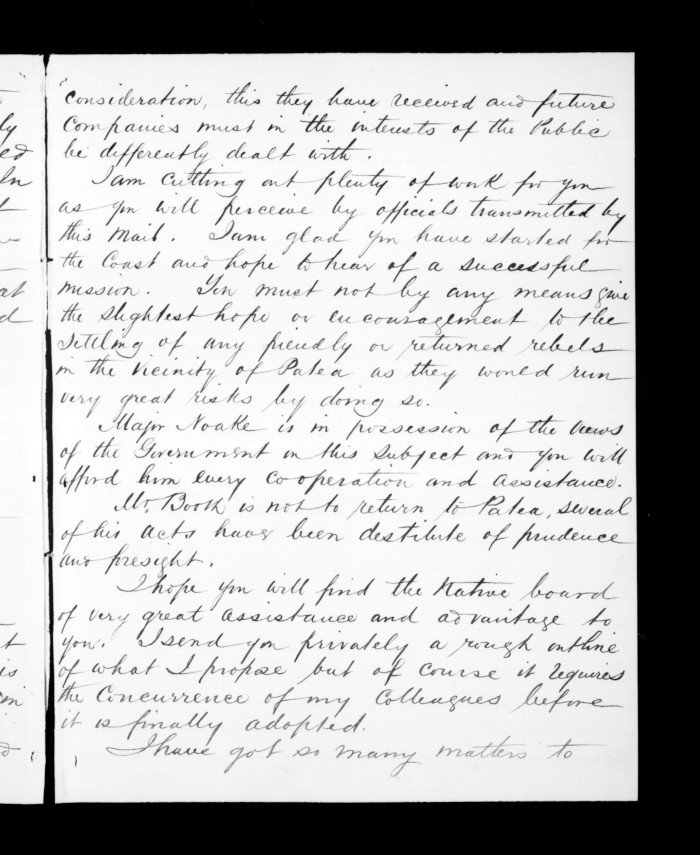 consideration, this they have received and future
Companies must in the interests of the Public
be differently dealt with.
I am cutting out plenty of work for you
as you will perceive by officials transmitted by
this Mail. I am glad you have started for
the Coast and hope to hear of a successful
mission. You must not by any means give
the slightest hope or encouragement to the
settling of any friendly or returned rebels
in the vicinity of Patea as they would run
very great risks by doing so.
Major Noake is in possession of the views
of the Government on this subject and you will
afford him every cooperation and assistance.
Mr. Booth is not to return to Patea, several
of his acts have been destitute of prudence
and foresight.
I hope you will find the Native board
of very great assistance and advantage to
you. I send you privately a rough outline
of what I propose but of course it requires
the Concurrence of my Colleagues before
it is finally adopted.
I have got so many matters to